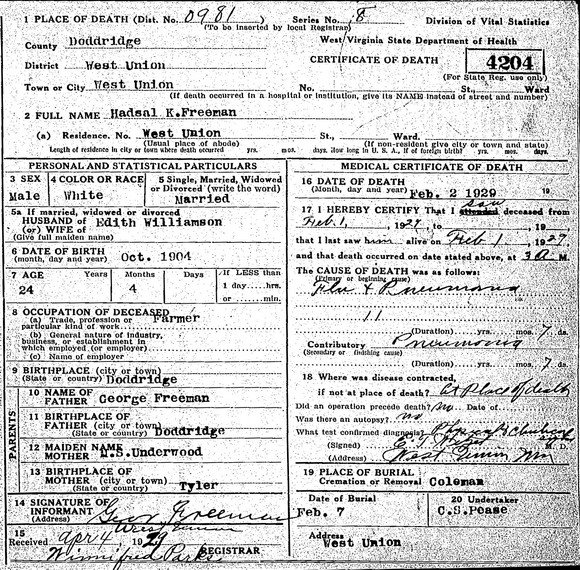 1 PLACE OF DEATH (Dist. No. 0981 ) Series No. 8 Division of Vital Statistics
(To be inserted by local Registrar)
County Doddridge West Virginia State Department of Health
District West Union CERTIFICATE OF DEATH 4204
(For State Reg. use only)
Town or City West Union No. St., Ward
(If death occurred in a hospital or institution, give its NAME instead of street and number)
2 FULL NAME Hadsal K.Freeman
(a) Residence. No. West Union St., Ward.
(Usual place of abode) (If non-resident give city or town and state)
Length of residence in city or town where death occurred yrs. mos. days. How long in U. S. A., if of foreign birth? yrs. mos. days.
PERSONAL AND STATISTICAL PARTICULARS
3 SEX 4 COLOR OR RACE 5 Single, Married, Widowed
or Divorced (write the word)
Male White Married
5a If married, widowed or divorced
HUSBAND of Edith Williamson
(or) WIFE of
(Give full maiden name)
6 DATE OF BIRTH
(month, day and year) Oct. 1904
7 AGE Years Months Days If LESS than
1 day......hrs.
24 4 or......min.
8 OCCUPATION OF DECEASED
(a) Trade, profession or Farmer
particular kind of work
(b) General nature of industry,
business, or establishment in
which employed (or employer)
(c) Name of employer
9 BIRTHPLACE (city or town)
(State or country) Doddridge
PARENTS
10 NAME OF
FATHER George Freeman
11 BIRTHPLACE OF
FATHER (city or town)
(State or country) Doddridge
12 MAIDEN NAME
MOTHER M.S.Underwood
13 BIRTHPLACE OF
MOTHER (city or town)
(State or country) Tyler
14 SIGNATURE OF
INFORMANT Geo Freeman
(Address) West Union
15
Received Apr 4 1929
Winnifred Parks REGISTRAR
MEDICAL CERTIFICATE OF DEATH
16 DATE OF DEATH
(Month, day and year) Feb. 2 1929 19
17 I HEREBY CERTIFY That I attended saw deceased from
Feb 1, 1929, to , 19
that I last saw him alive on Feb 1 1929
and that death occurred on date stated above, at 3 a M.
The CAUSE OF DEATH was as follows:
(Primary or beginning cause)
Flu & Pneumonia
11
(Duration) yrs. mos. 7 ds.
Contributory Pneumonia
(Secondary or finishing cause)
(Duration) yrs. mos. 7 ds.
18 Where was disease contracted,
if not at place of death? at Place of death
Did an operation precede death? no Date of
Was there an autopsy? no
What test confirmed diagnosis?
(Signed) M. D.
(Address) West Union
19 PLACE OF BURIAL
Cremation or Removal Coleman
Date of Burial 20 Undertaker
Feb. 7 C.S.Pease
Address
West Union